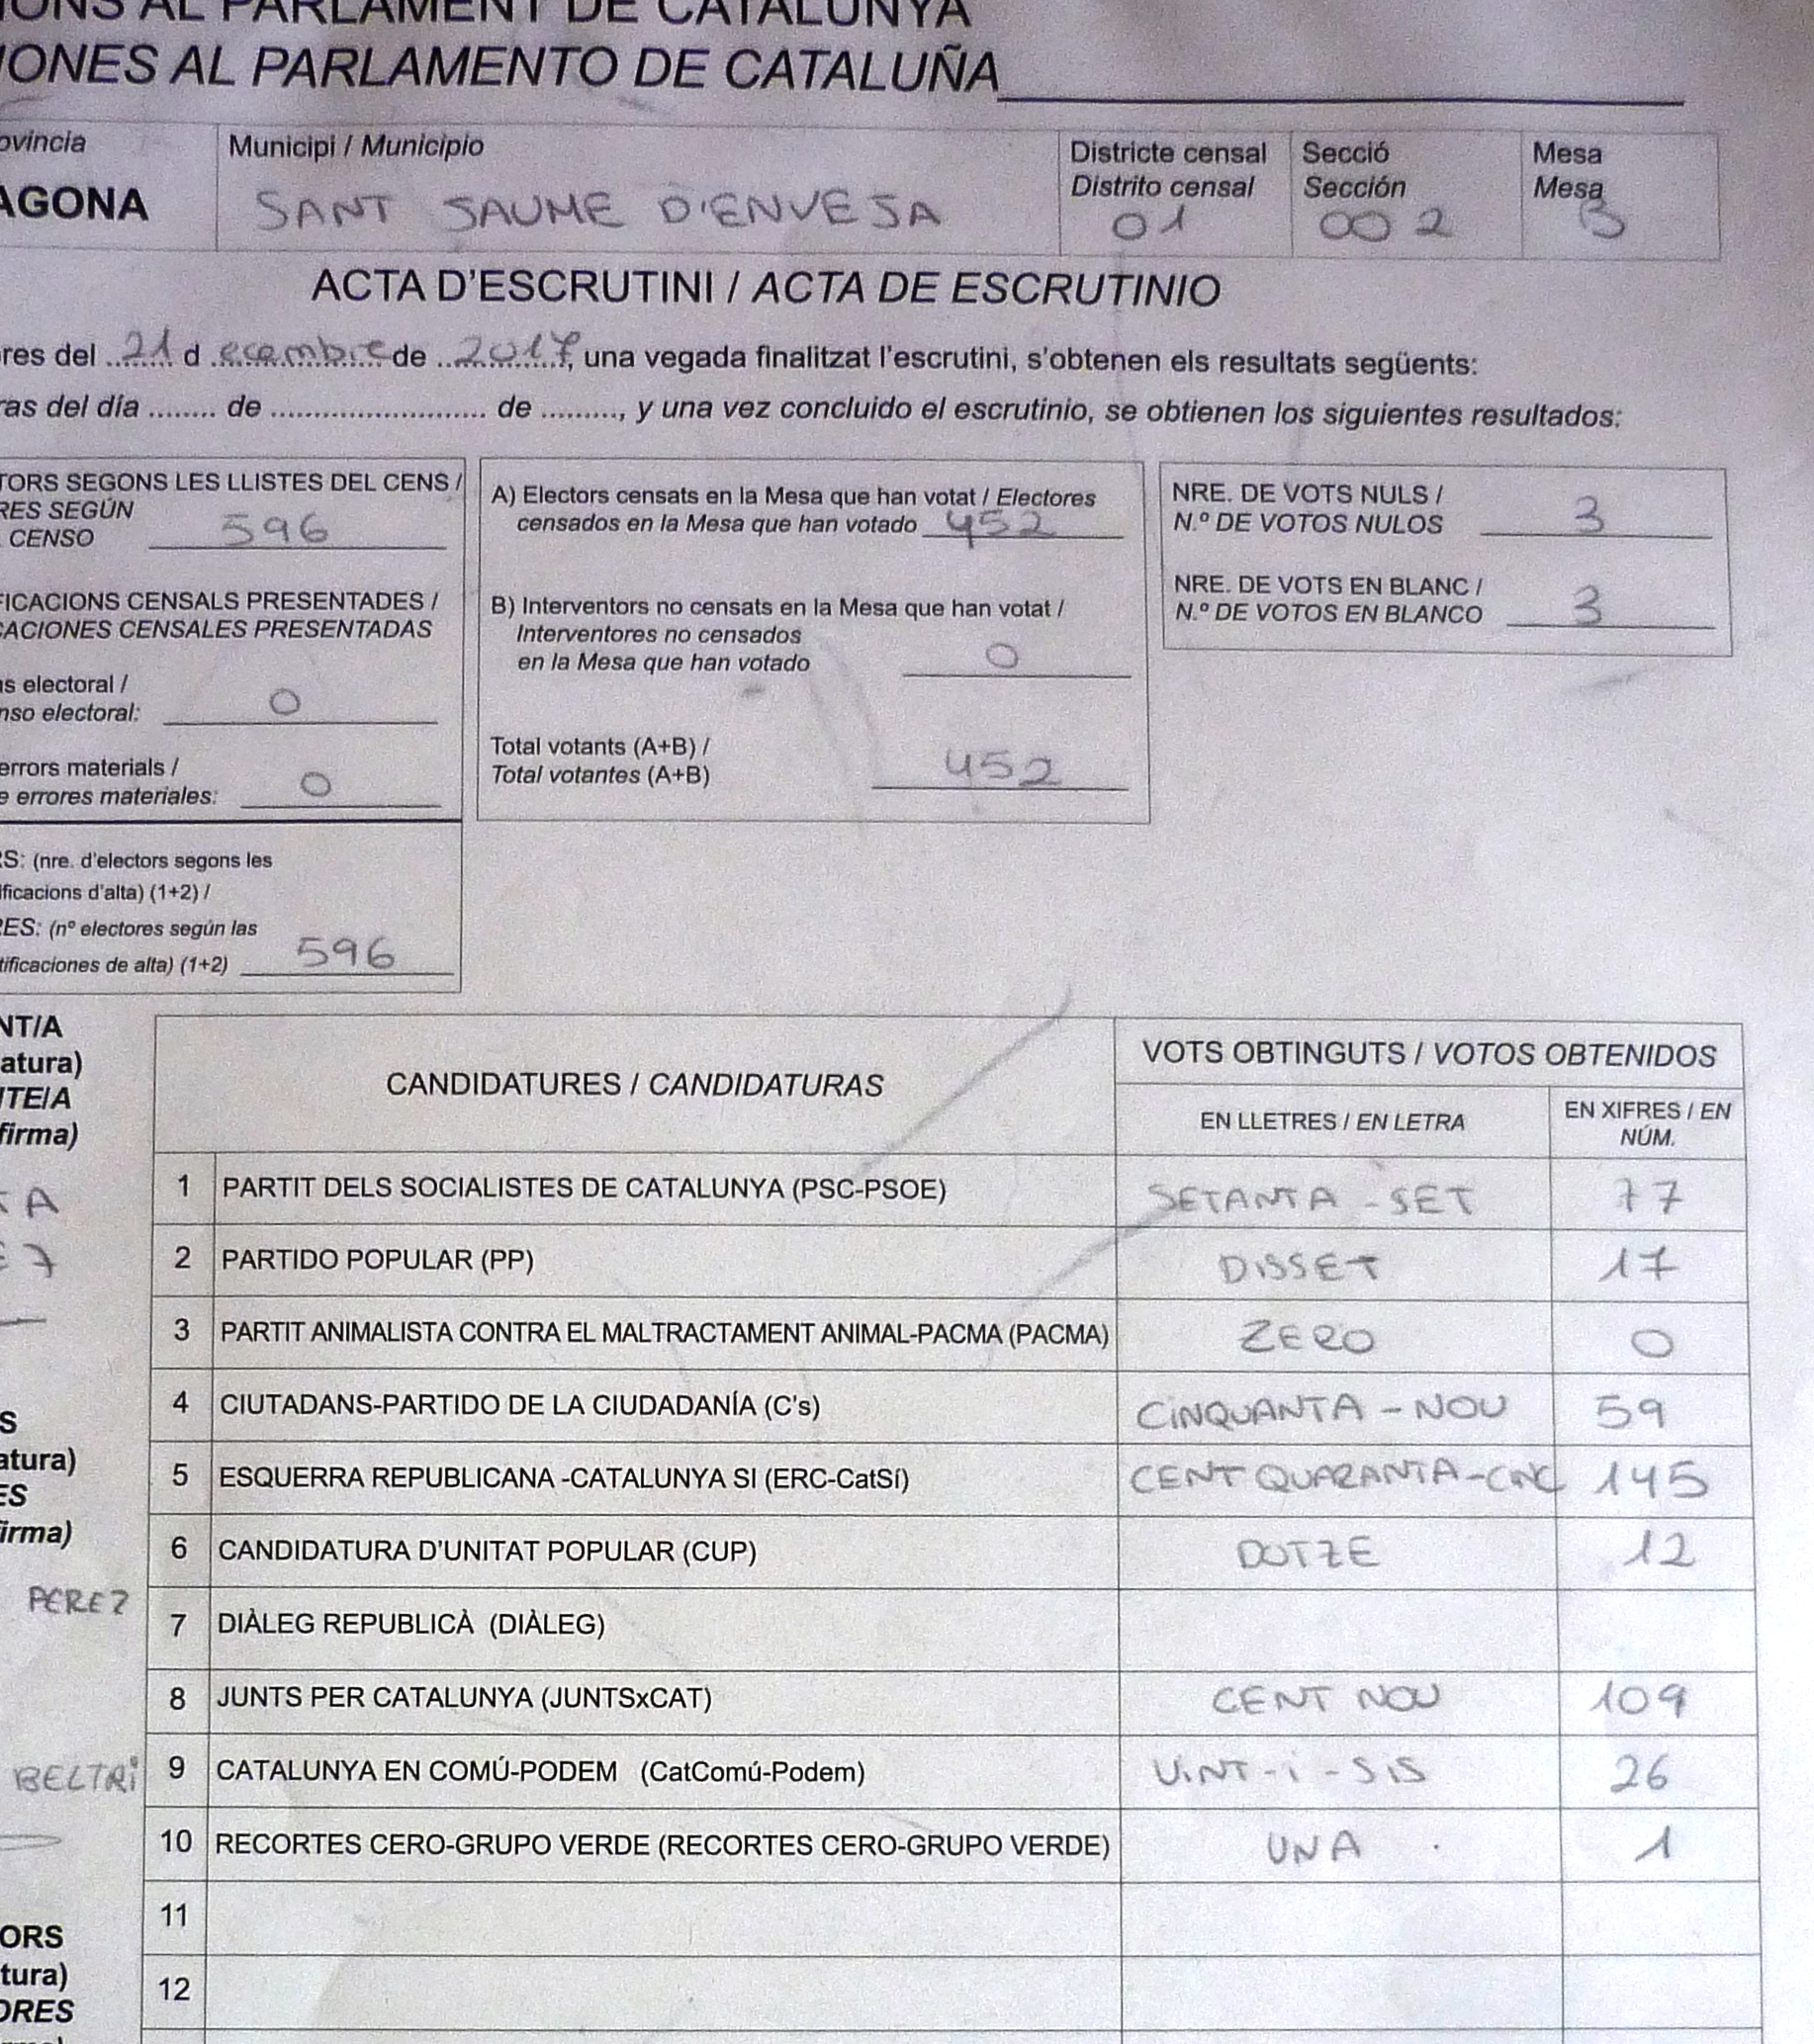 IONS AL PARLAMENT DE CATALUNYA
IONES AL PARLAMENTO DE CATALUÑA
ovincia
AGONA
Municipi / Municipio
SANT JAUME D'ENVEJA
Districte censal
Distrito censal
01
Secció
Sección
002
Mesa
Mesa
B
ACTA D'ESCRUTINI / ACTA DE ESCRUTINIO
res del 21 d ecembre de 2017, una vegada finalitzat l'escrutini, s'obtenen els resultats següents:
ras del día ........ de ........................ de ........., y una vez concluido el escrutinio, se obtienen los siguientes resultados:
TORS SEGONS LES LLISTES DEL CENS /
RES SEGÚN
CENSO 596
FICACIONS CENSALS PRESENTADES /
CACIONES CENSALES PRESENTADAS
s electoral /
nso electoral: 0
errors materials /
e errores materiales: 0
RS: (nre. d'electors segons les
ificacions d'alta) (1+2) /
RES: (nº electores según las
tificaciones de alta) (1+2) 596
A) Electors censats en la Mesa que han votat / Electores
censados en la Mesa que han votado 452
B) Interventors no censats en la Mesa que han votat /
Interventores no censados
en la Mesa que han votado 0
Total votants (A+B) /
Total votantes (A+B) 452
NRE. DE VOTS NULS /
N.º DE VOTOS NULOS 3
NRE. DE VOTS EN BLANC /
N.º DE VOTOS EN BLANCO 3
NT/A
atura)
NTE/A
firma)
S
atura)
ES
firma)
PEREZ
BELTRI
ORS
tura)
ORES
CANDIDATURES / CANDIDATURAS
VOTS OBTINGUTS / VOTOS OBTENIDOS
EN LLETRES / EN LETRA
EN XIFRES / EN
NÚM.
1 PARTIT DELS SOCIALISTES DE CATALUNYA (PSC-PSOE) SETANTA - SET 77
2 PARTIDO POPULAR (PP) DISSET 17
3 PARTIT ANIMALISTA CONTRA EL MALTRACTAMENT ANIMAL-PACMA (PACMA) ZERO 0
4 CIUTADANS-PARTIDO DE LA CIUDADANÍA (C's) CINQUANTA - NOU 59
5 ESQUERRA REPUBLICANA -CATALUNYA SI (ERC-CatSí) CENT QUARANTA-CINC 145
6 CANDIDATURA D'UNITAT POPULAR (CUP) DOTZE 12
7 DIÀLEG REPUBLICÀ (DIÀLEG)
8 JUNTS PER CATALUNYA (JUNTSxCAT) CENT NOU 109
9 CATALUNYA EN COMÚ-PODEM (CatComú-Podem) VINT-i-SIS 26
10 RECORTES CERO-GRUPO VERDE (RECORTES CERO-GRUPO VERDE) UNA 1
11
12